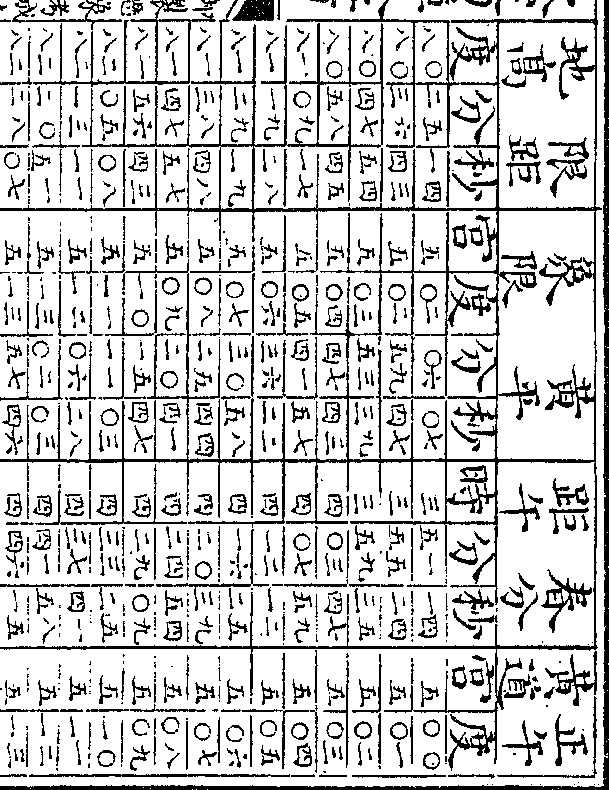 地高 限距 象限 黃平 距午 春分 黃道 正午
度 分 秒 宮 度 分 秒 時 分 秒 宮 度
八〇 二五 一四 五 〇二 〇六 〇七 三 五一 一四 五 〇〇
八〇 三六 四三 五 〇二 五九 四七 三 五五 二四 五 〇一
八〇 四七 五四 五 〇三 五三 三九 三 五九 三五 五 〇二
八〇 五八 四五 五 〇四 四七 四三 四 〇三 四七 五 〇三
八一 〇九 一七 五 〇五 四一 五七 四 〇七 五九 五 〇四
八一 一九 二八 五 〇六 三六 二二 四 一二 一二 五 〇五
八一 二九 一九 五 〇七 三〇 五八 四 一六 二五 五 〇六
八一 三八 四八 五 〇八 二五 四四 四 二〇 三九 五 〇七
八一 四七 五七 五 〇九 二〇 四一 四 二四 五四 五 〇八
八一 五六 四三 五 一〇 一五 四七 四 二九 〇九 五 〇九
八二 〇五 〇八 五 一一 一一 〇三 四 三三 二五 五 一〇
八二 一三 一一 五 一二 〇六 二八 四 三七 四一 五 一一
八二 二〇 五一 五 一三 〇二 〇三 四 四一 五八 五 一二
八二 二八 〇七 五 一三 五七 四六 四 四六 一五 五 一三